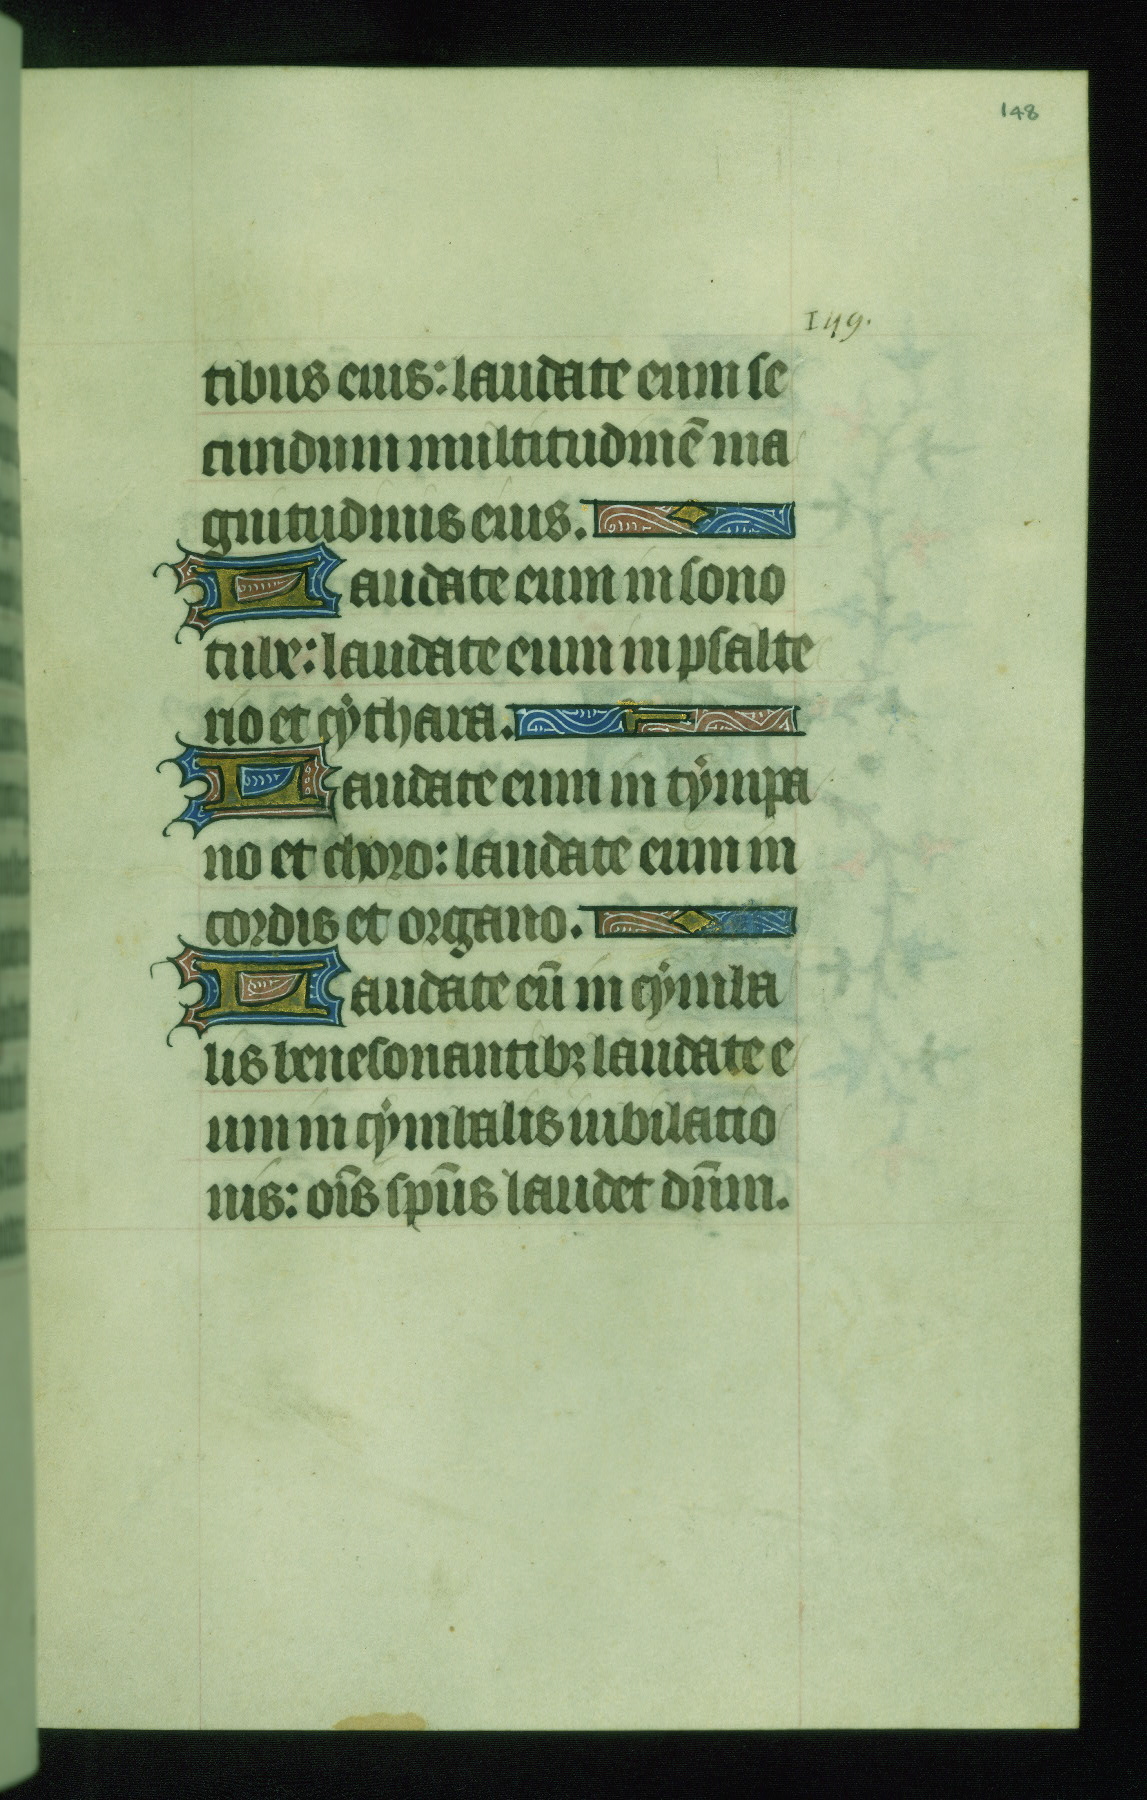 148
149.
tibus eius: laudate eum se
cundum multitudinē ma
gnitudinis eius.
Laudate eum in sono
tube: laudate eum in psalte
rio et cẏthara.
Laudate eum in tẏmpa
no et choro: laudate eum in
cordis et organo.
Laudate eū in cẏmba
lis benesonantibꝫ laudate e
um in cẏmbalis iubilatio
nis: oīs spūs laudet dn̄m.